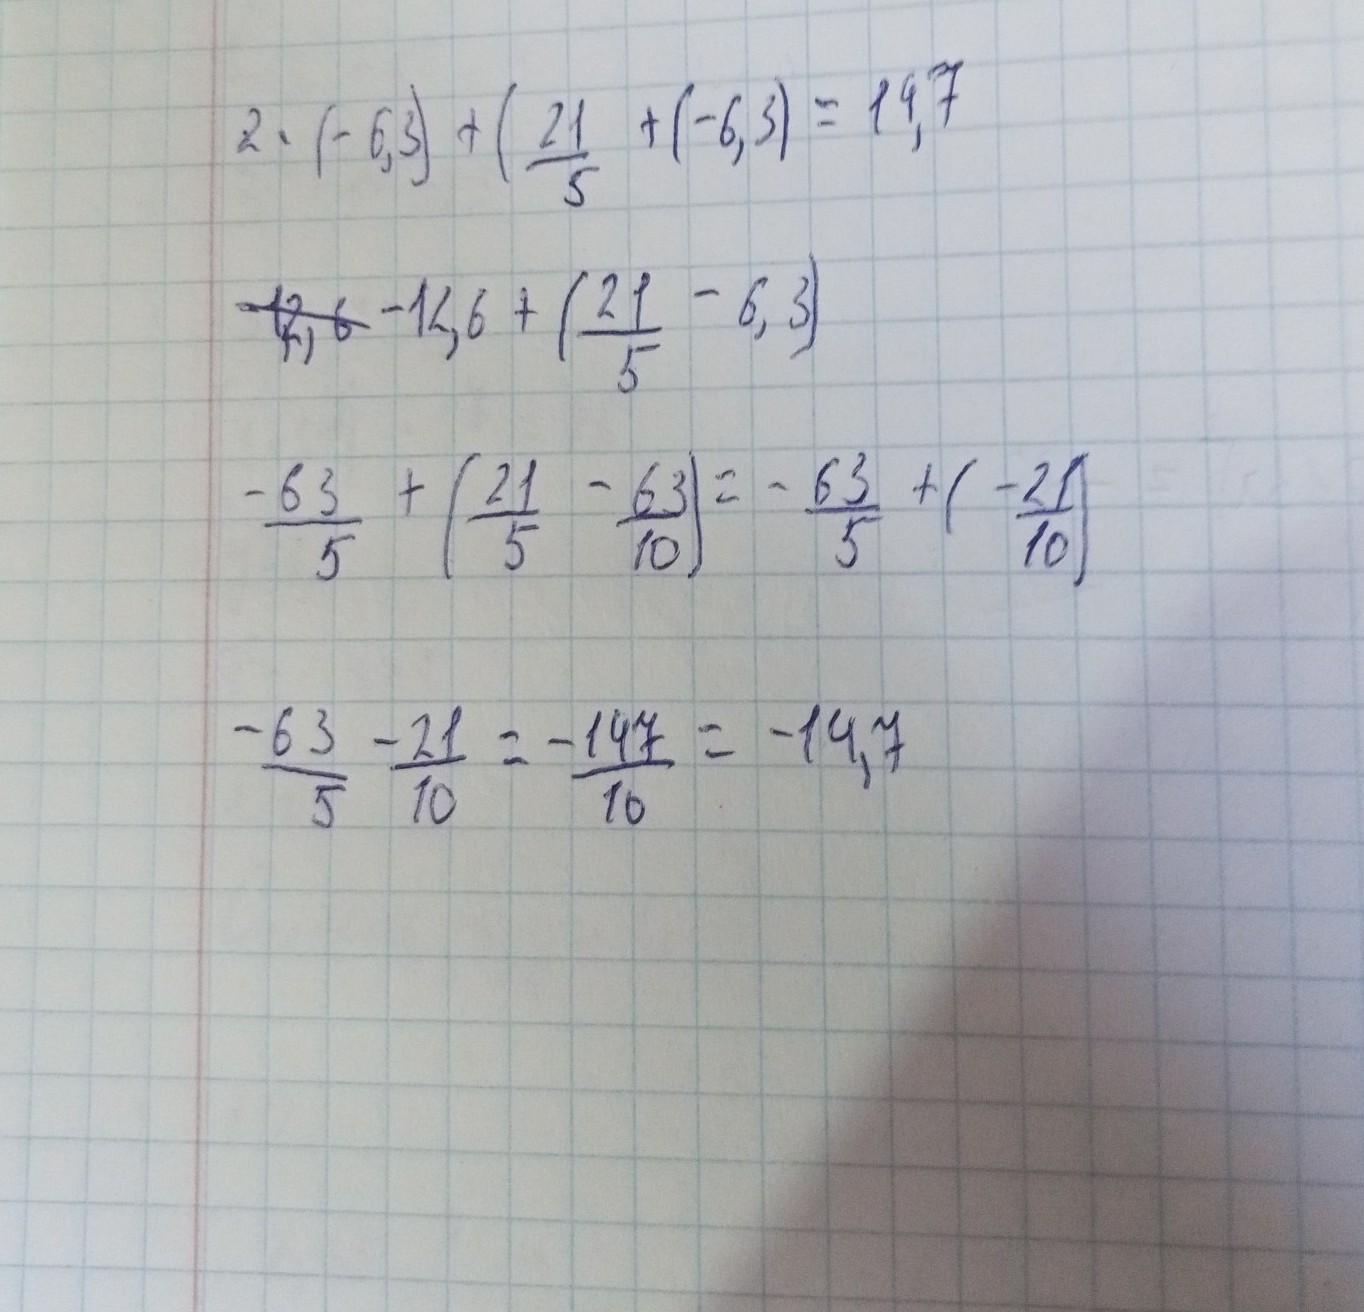 2 · (-6,3) + (21/5 + (-6,3) = 14,7
-12,6 + (21/5 - 6,3)
-63/5 + (21/5 - 63/10) = -63/5 + (-21/10)
-63/5 - 21/10 = -147/10 = -14,7